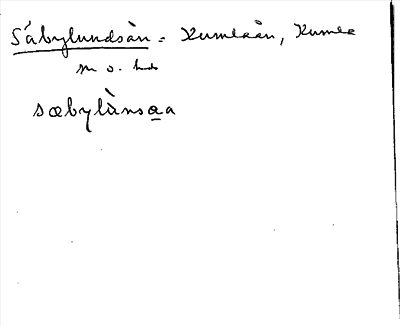 Säbylundsån = Kumlaån, Kumla
sn o. hd
sæbylànsa̲a